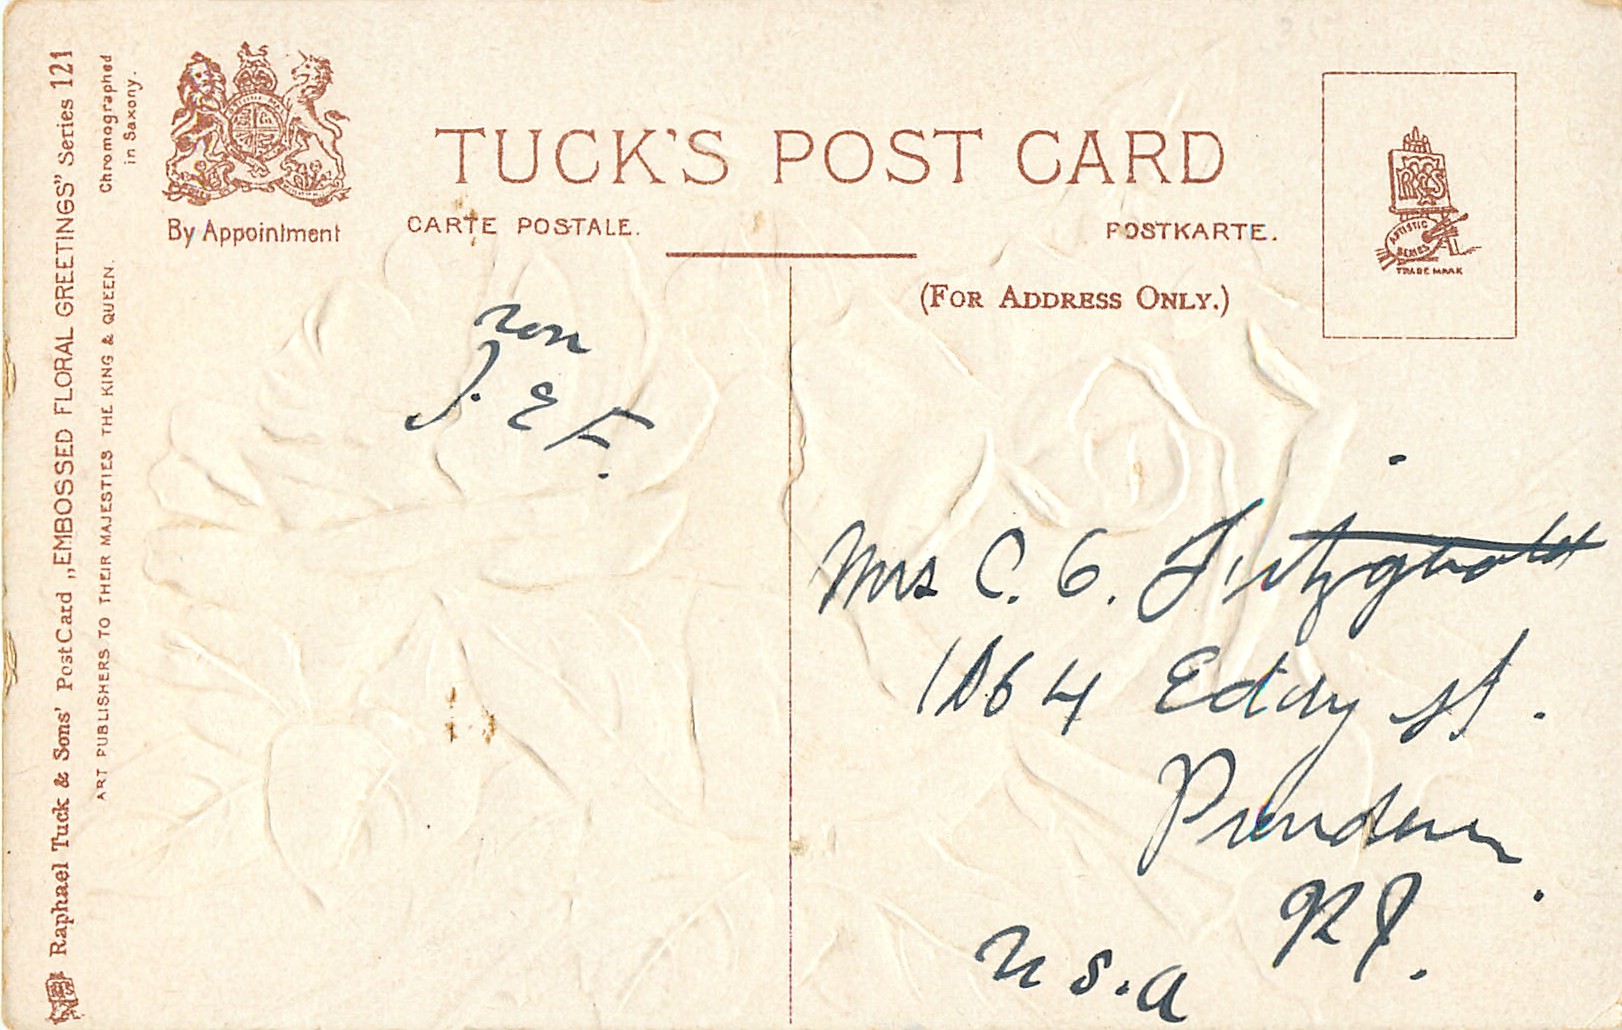 TUCK'S POST CARD
CARTE POSTALE.
POSTKARTE.
(FOR ADDRESS ONLY.)
By Appointment
ARTISTIC
SERIES
TRADE MARK
Raphael Tuck & Sons' Post Card „EMBOSSED FLORAL GREETINGS" Series 121
Chromographed
in Saxony.
ART PUBLISHERS TO THEIR MAJESTIES THE KING & QUEEN.
J. E F.
Mrs C. G. Fitzgerald
1064 Eddy St.
Providence
R I.
U S. A